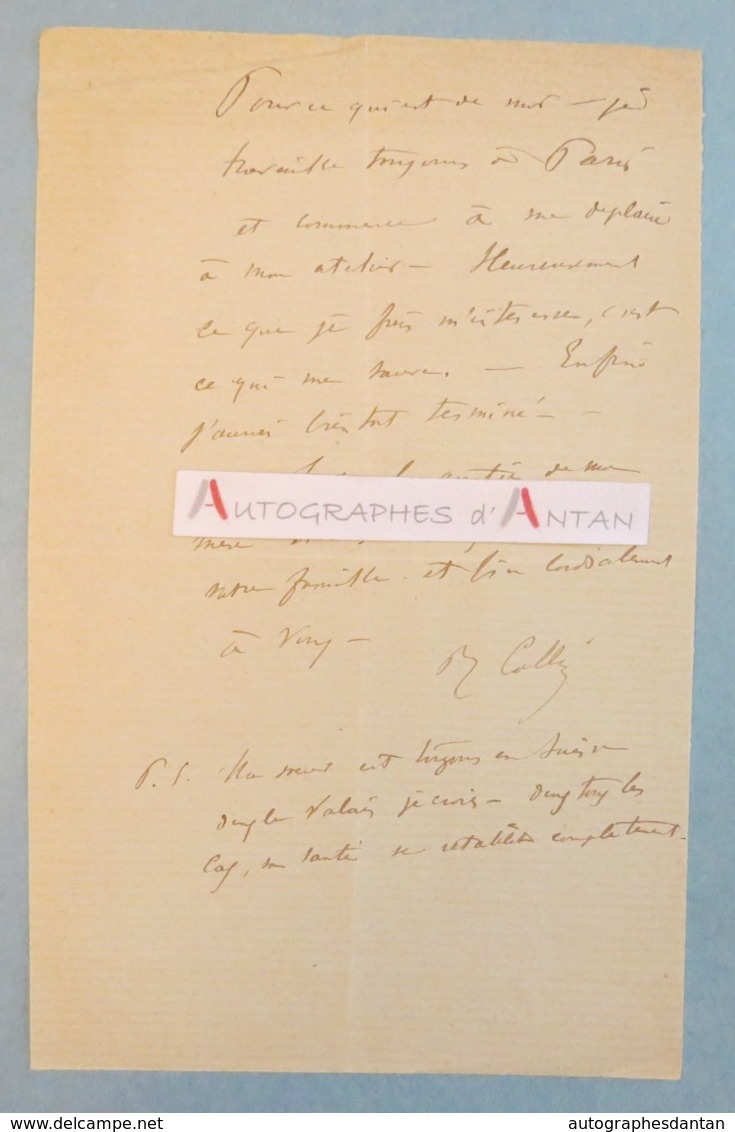 Pour ce qui est de moi — je
travaille toujours à Paris
et commence à me deplaire
à mon atelier — Heureusement
ce que je fais m'interesse, c'est
ce qui me sauve. — Enfin
j'aurai bientot terminé — —
de ma
AUTOGRAPHES d'ANTAN
mere
votre famille. et bien cordialement
à Vous —
R Collin
P. S. Ma soeur est toujours en Suisse
dans le Valais je crois — dans tous les
cas, sa santé se rétablit completement.
delcampe.net
autographesdantan